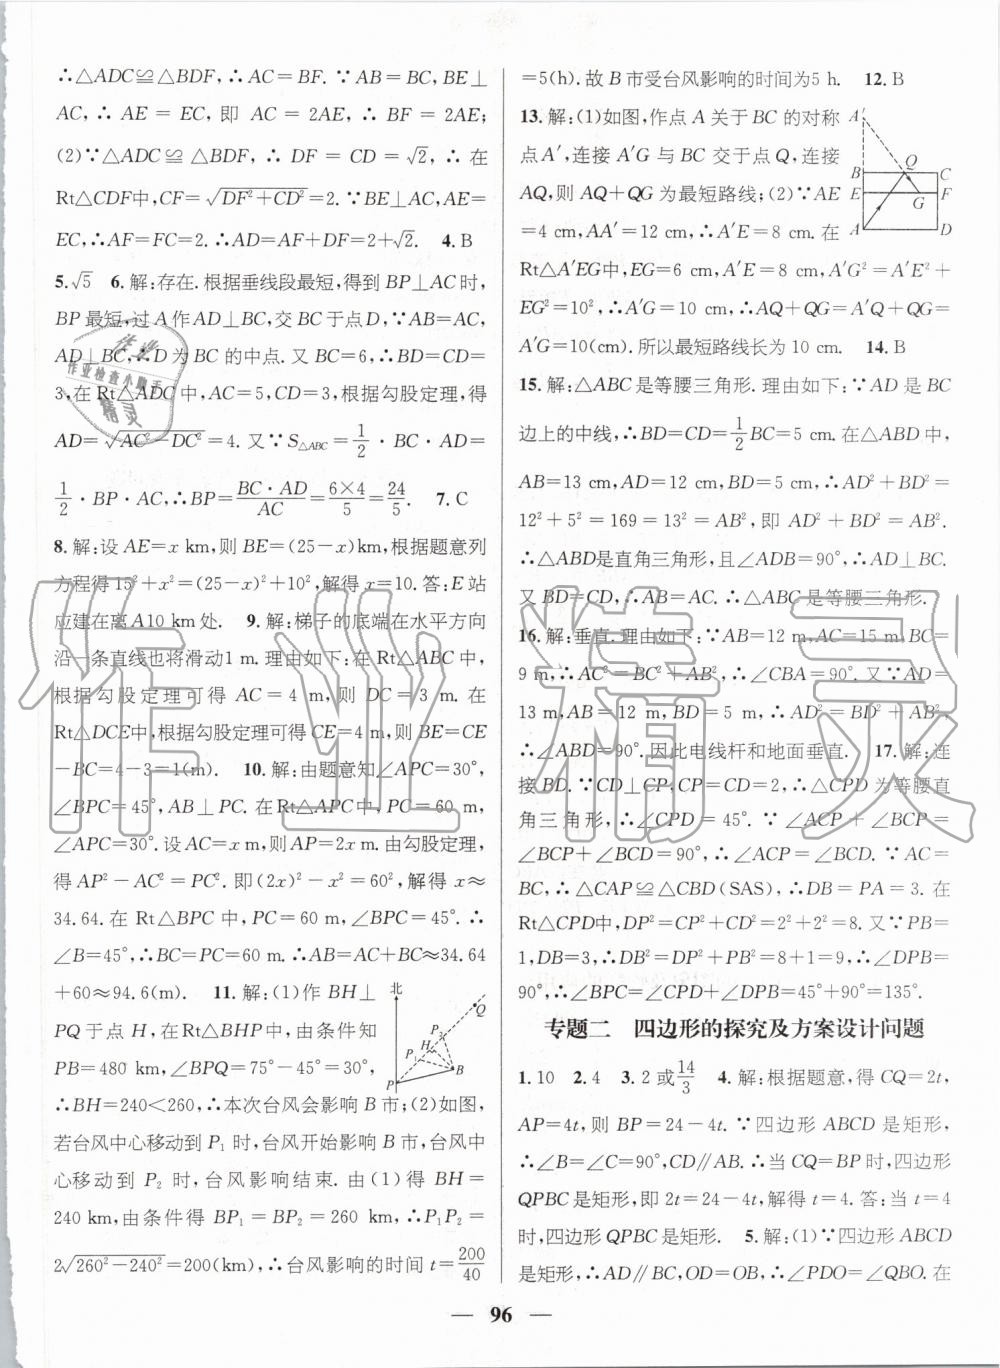 ∴△ADC≌△BDF,∴AC=BF.∵AB=BC,BE⊥
AC,∴AE=EC,即 AC=2AE,∴BF=2AE;
(2)∵△ADC≌△BDF,∴DF=CD=√2,∴在
Rt△CDF中,CF=√(DF²+CD²)=2.∵BE⊥AC,AE=
EC,∴AF=FC=2.∴AD=AF+DF=2+√2. 4.B
5.√5 6.解:存在.根据垂线段最短,得到 BP⊥AC时,
BP最短,过A作AD⊥BC,交BC于点D,∵AB=AC,
AD⊥BC,∴D为BC的中点.又BC=6,∴BD=CD=
3,在Rt△ADC中,AC=5,CD=3,根据勾股定理,得
AD=√(AC²-DC²)=4.又∵S△ABC=1/2·BC·AD=
1/2·BP·AC,∴BP=BC·AD/AC=6×4/5=24/5. 7.C
8.解:设AE=x km,则BE=(25-x)km,根据题意列
方程得15²+x²=(25-x)²+10²,解得x=10.答:E站
应建在离A10 km处. 9.解:梯子的底端在水平方向
沿一条直线也将滑动1 m.理由如下:在Rt△ABC中,
根据勾股定理可得 AC=4 m,则 DC=3 m.在
Rt△DCE中,根据勾股定理可得CE=4 m,则BE=CE
-BC=4-3=1(m). 10.解:由题意知∠APC=30°,
∠BPC=45°,AB⊥PC.在Rt△APC中,PC=60 m,
∠APC=30°.设AC=x m,则AP=2x m.由勾股定理,
得AP²-AC²=PC².即(2x)²-x²=60²,解得x≈
34.64.在Rt△BPC中,PC=60 m,∠BPC=45°.∴
∠B=45°,∴BC=PC=60 m.∴AB=AC+BC≈34.64
+60≈94.6(m). 11.解:(1)作 BH⊥
PQ于点H,在Rt△BHP中,由条件知
PB=480 km,∠BPQ=75°-45°=30°,
∴BH=240<260,∴本次台风会影响B市;(2)如图,
若台风中心移动到P₁时,台风开始影响B市,台风中
心移动到P₂时,台风影响结束.由(1)得 BH=
240 km,由条件得 BP₁=BP₂=260 km,∴P₁P₂=
2√(260²-240²)=200(km),∴台风影响的时间t=200/40
北
Q
P₂
H
P₁
B
P
=5(h).故B市受台风影响的时间为5 h. 12.B
13.解:(1)如图,作点A关于BC的对称
点A′,连接A′G与BC交于点Q,连接
AQ,则AQ+QG为最短路线;(2)∵AE
=4 cm,AA′=12 cm,∴A′E=8 cm.在
Rt△A′EG中,EG=6 cm,A′E=8 cm,A′G²=A′E²+
EG²=10²,∴A′G=10 cm,∴AQ+QG=A′Q+QG=
A′G=10(cm).所以最短路线长为10 cm. 14.B
A′
Q
B
C
E
F
G
A
D
15.解:△ABC是等腰三角形.理由如下:∵AD是BC
边上的中线,∴BD=CD=1/2BC=5 cm.在△ABD中,
AB=13 cm,AD=12 cm,BD=5 cm,AD²+BD²=
12²+5²=169=13²=AB²,即AD²+BD²=AB².
∴△ABD是直角三角形,且∠ADB=90°,∴AD⊥BC.
又BD=CD,∴AB=AC.∴△ABC是等腰三角形.
16.解:垂直.理由如下:∵AB=12 m,AC=15 m,BC=
9 m,∴AC²=BC²+AB²,∴∠CBA=90°.又∵AD=
13 m,AB=12 m,BD=5 m,∴AD²=BD²+AB²,
∴∠ABD=90°.因此电线杆和地面垂直. 17.解:连
接BD.∵CD⊥CP,CP=CD=2,∴△CPD为等腰直
角三角形,∴∠CPD=45°.∵∠ACP+∠BCP=
∠BCP+∠BCD=90°,∴∠ACP=∠BCD.∵AC=
BC,∴△CAP≌△CBD(SAS),∴DB=PA=3.在
Rt△CPD中,DP²=CP²+CD²=2²+2²=8.又∵PB=
1,DB=3,∴DB²=DP²+PB²=8+1=9,∴∠DPB=
90°,∴∠BPC=∠CPD+∠DPB=45°+90°=135°.
专题二 四边形的探究及方案设计问题
1.10 2.4 3.2或14/3 4.解:根据题意,得CQ=2t,
AP=4t,则BP=24-4t.∵四边形ABCD是矩形,
∴∠B=∠C=90°,CD∥AB.∴当CQ=BP时,四边形
QPBC是矩形,即2t=24-4t,解得t=4.答:当t=4
时,四边形QPBC是矩形. 5.解:(1)∵四边形ABCD
是矩形,∴AD∥BC,OD=OB,∴∠PDO=∠QBO.在
作业
作业检查小助手
精灵
作业精灵
— 96 —